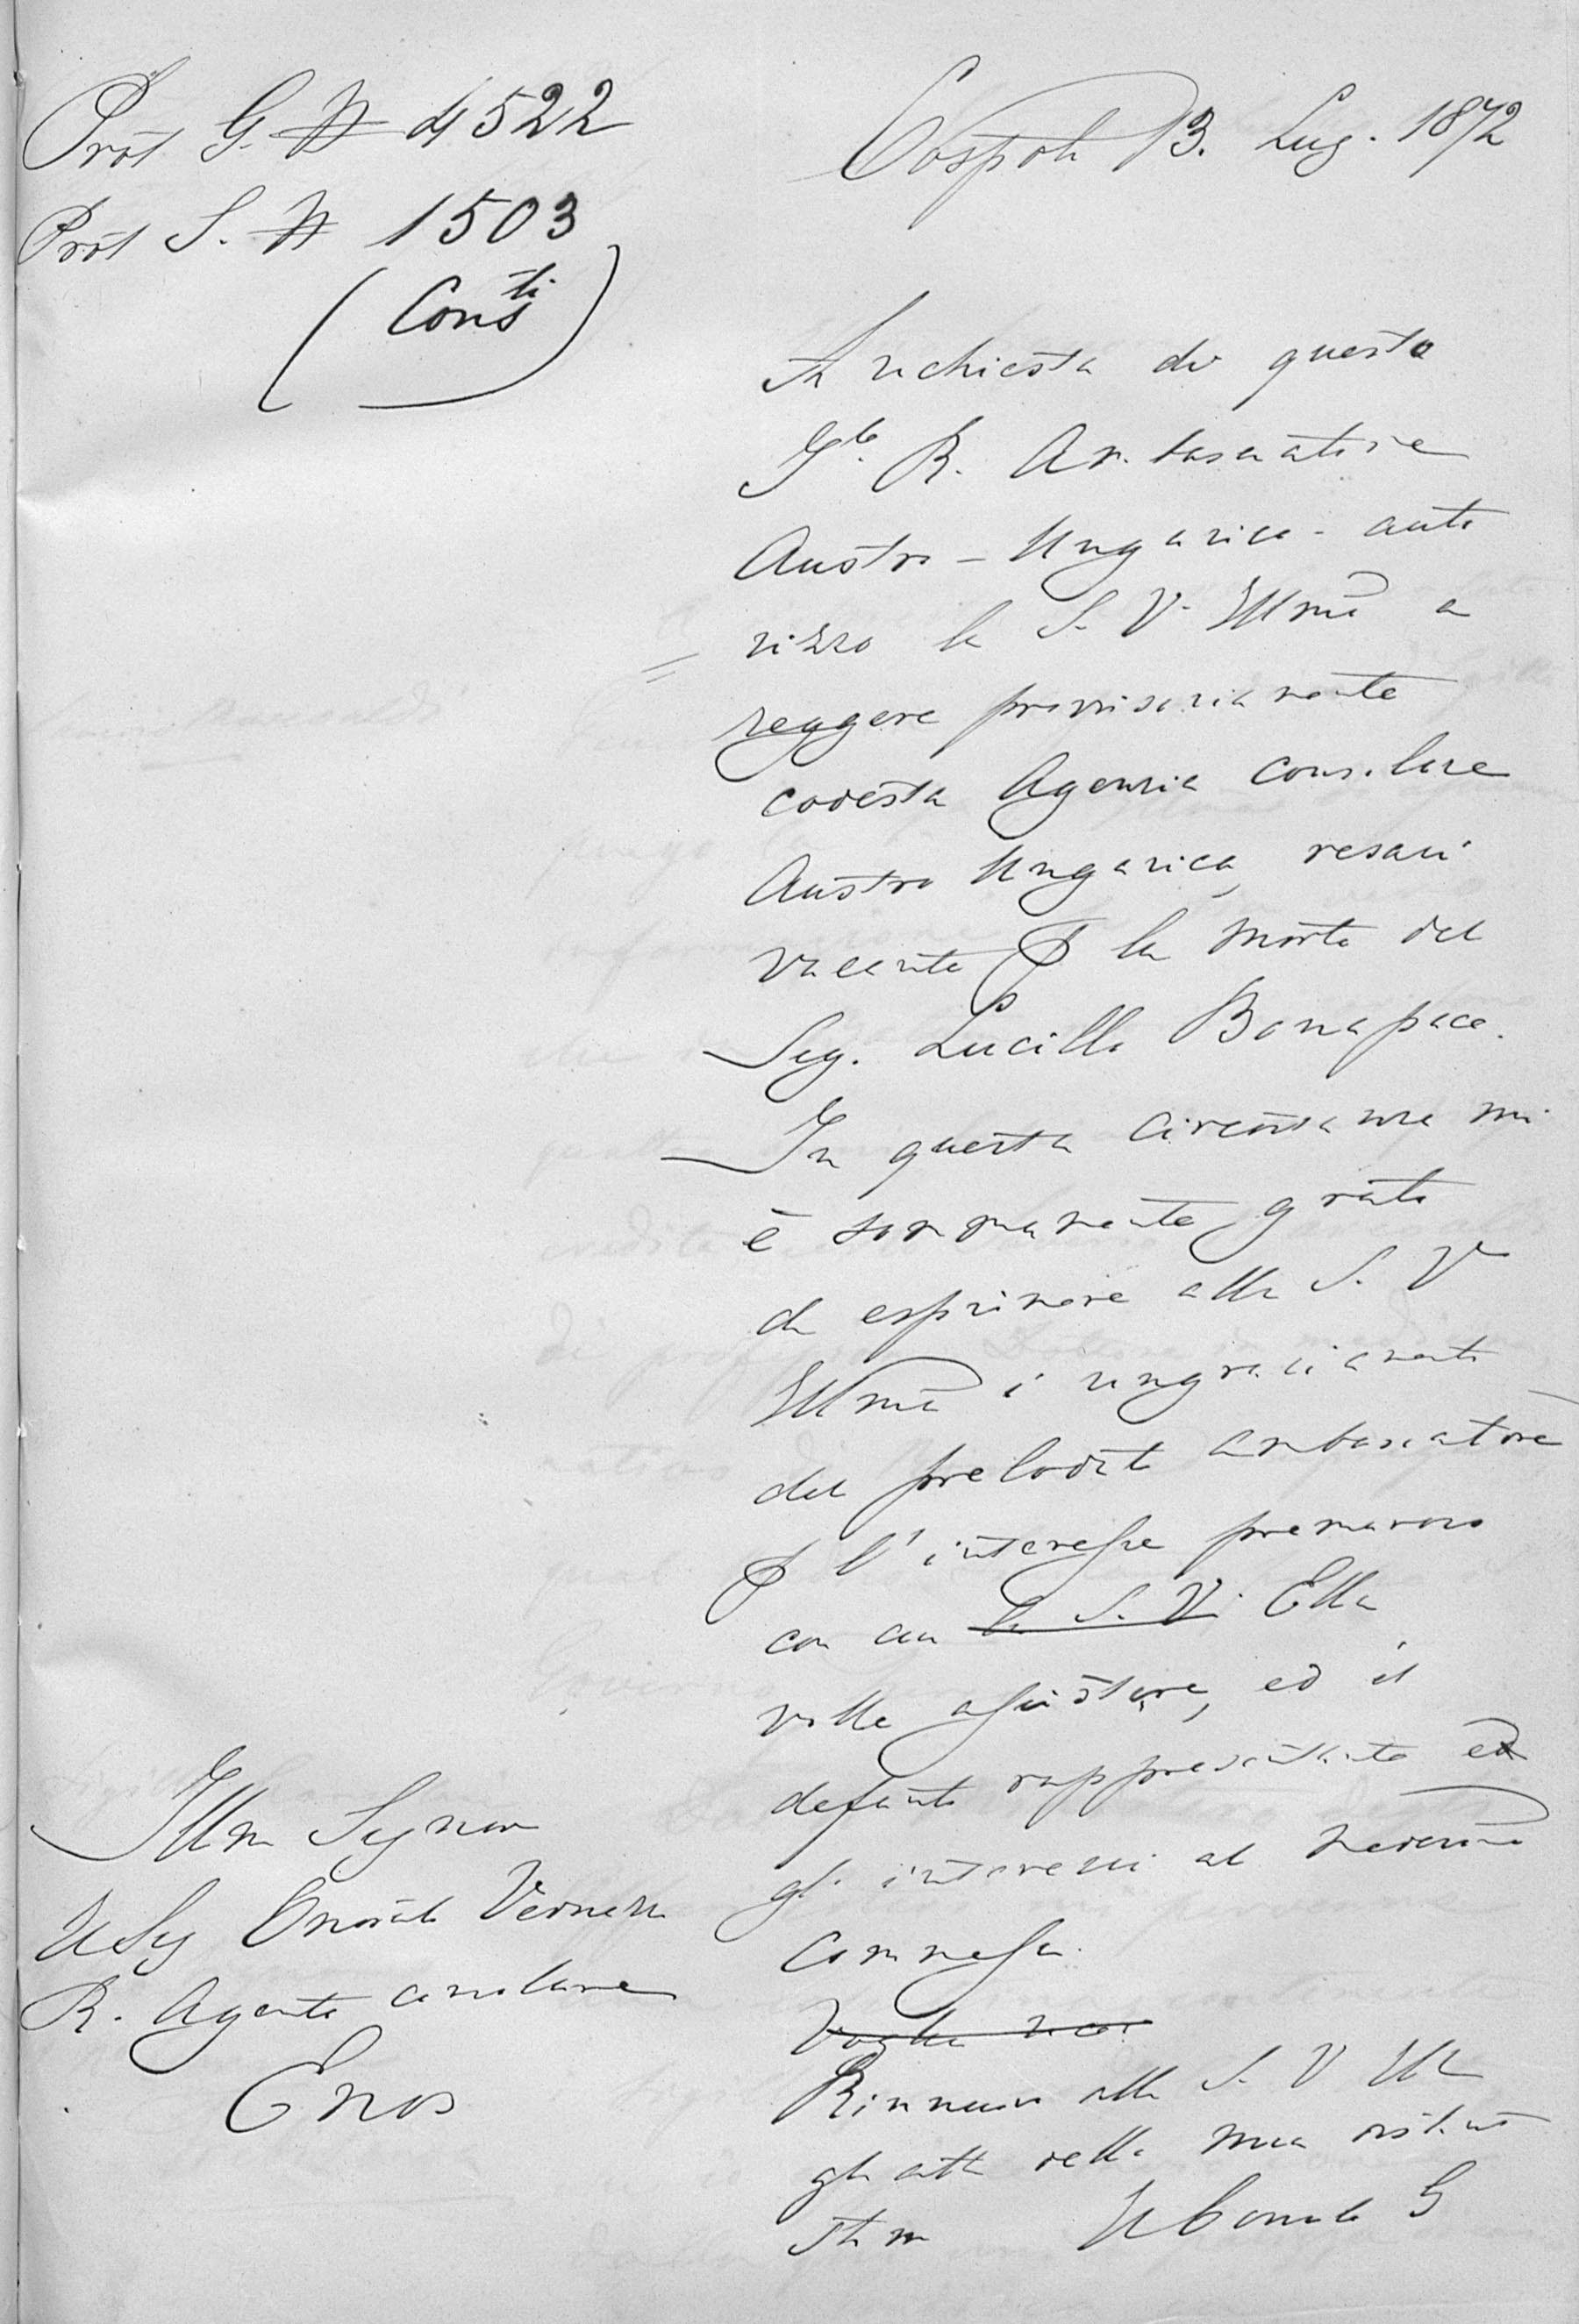 Prot G. N 4522
Prot S. N 1503
(Cons.ti)
Cospoli 13. Lug. 1872
A richiesta di questo
R. Ambasciatore
Austro-Ungarico - auto
rizzo la S. V. Illma a
reggere provvisoriamente
codesta Agenzia Consolare
Austro Ungarica, resasi
vacante p la morte del
Sig. Lucillo Bonapace.
In questa circostanza mi
è sommamente grato
di esprimere alla S. V
Illma i ringraziamenti
del prelodato ambasciatore
p l'interesse premuroso
con cui la S. V. Ella
volle assistere, ed il
defunto rappresentante ed
gli interessi al medesimo
Commessi.
Voglia
Rinnovo alla S. V Ill
gli atti della mia distinta
stima Il Console G
Illm Signor
Il Sig Onorato Vernazza
R. Agente consolare
Enos